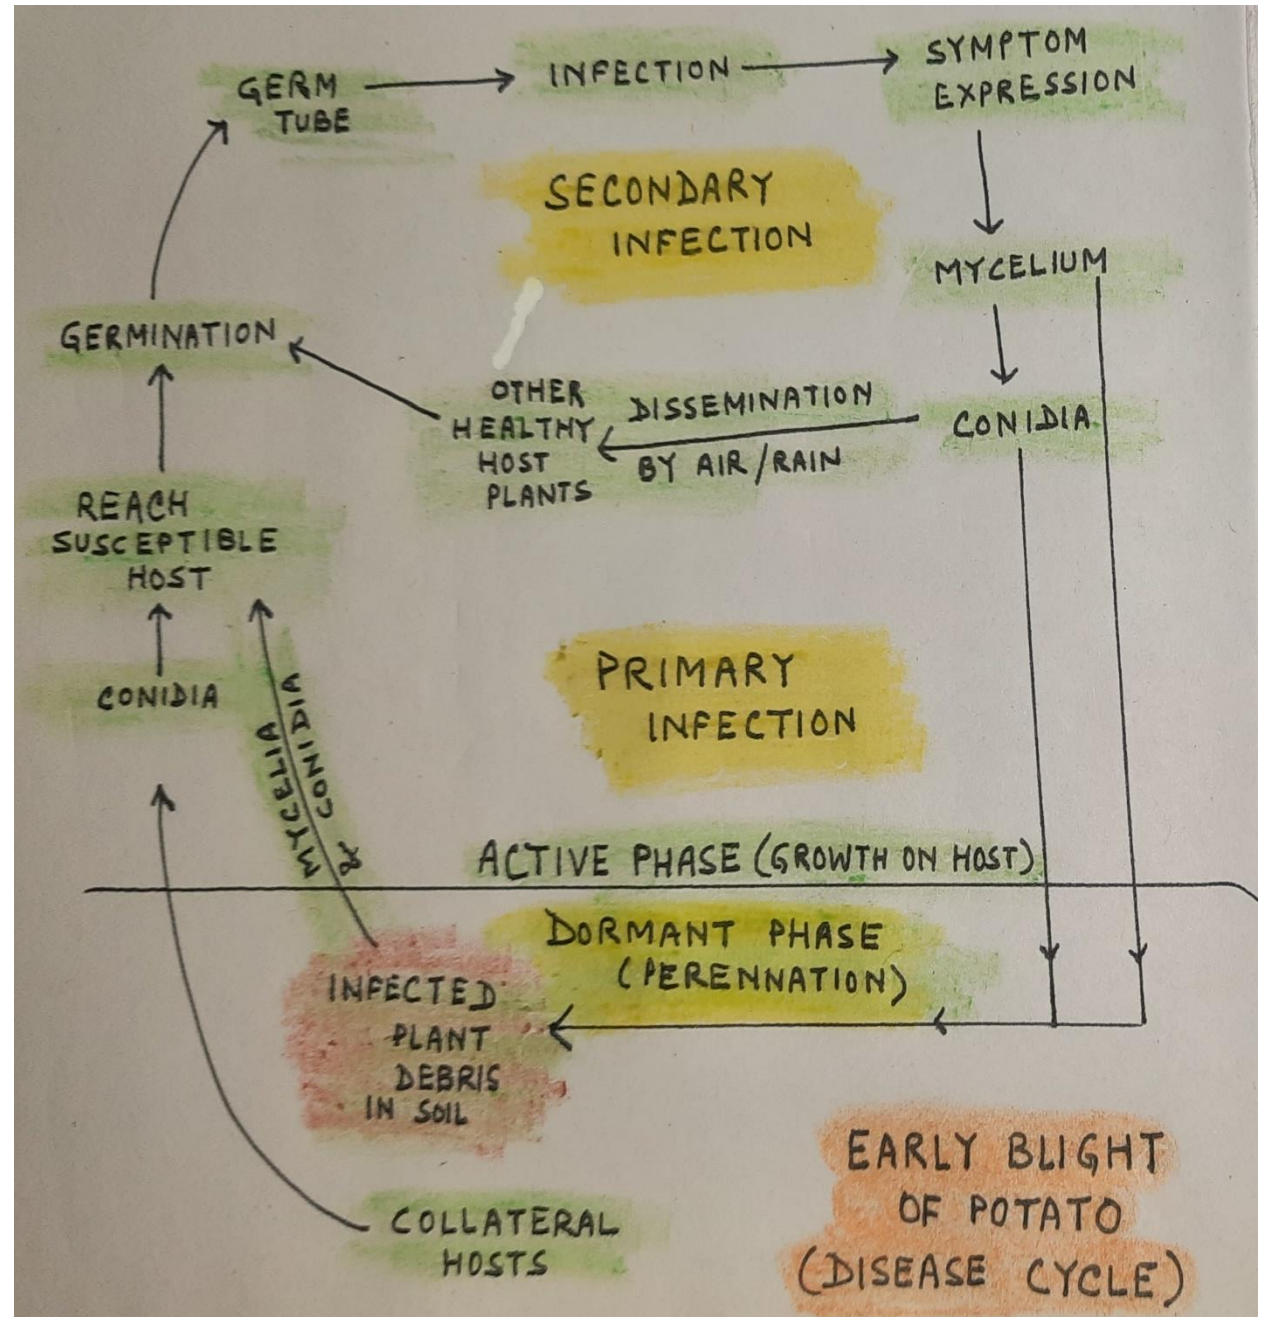 GERM
TUBE
INFECTION
SYMPTOM
EXPRESSION
SECONDARY
INFECTION
MYCELIUM
GERMINATION
OTHER
HEALTHY
HOST
PLANTS
DISSEMINATION
BY AIR/RAIN
CONIDIA
REACH
SUSCEPTIBLE
HOST
CONIDIA
MYCELIA
& CONIDIA
PRIMARY
INFECTION
ACTIVE PHASE (GROWTH ON HOST)
DORMANT PHASE
(PERENNATION)
INFECTED
PLANT
DEBRIS
IN SOIL
COLLATERAL
HOSTS
EARLY BLIGHT
OF POTATO
(DISEASE CYCLE)